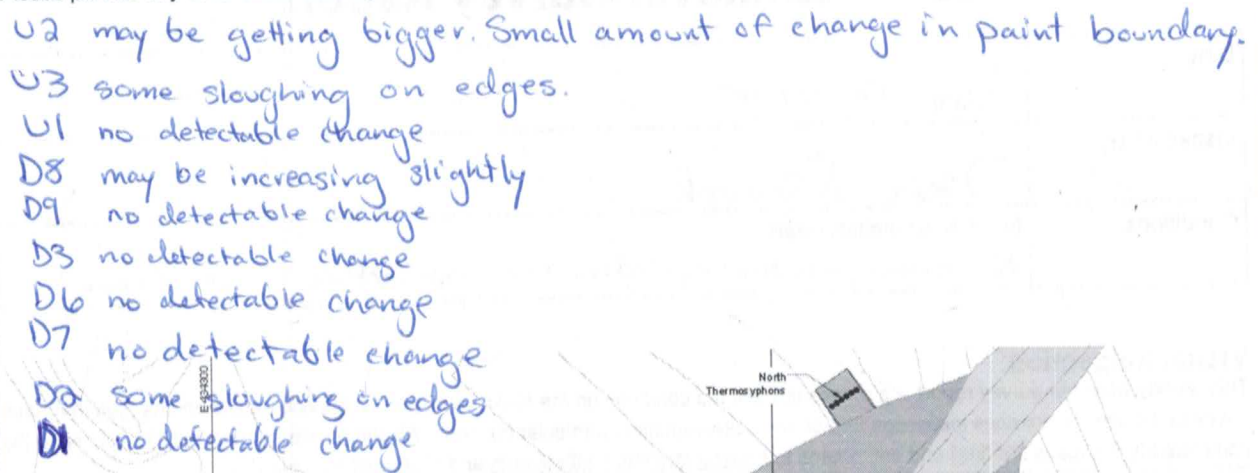 U2 may be getting bigger. Small amount of change in paint boundary.
U3 some sloughing on edges.
U1 no detectable change
D8 may be increasing slightly
D9 no detectable change
D3 no detectable change
D6 no detectable change
D7 no detectable change
D2 some sloughing on edges
D1 no detectable change
E 434300
North
Thermosyphons